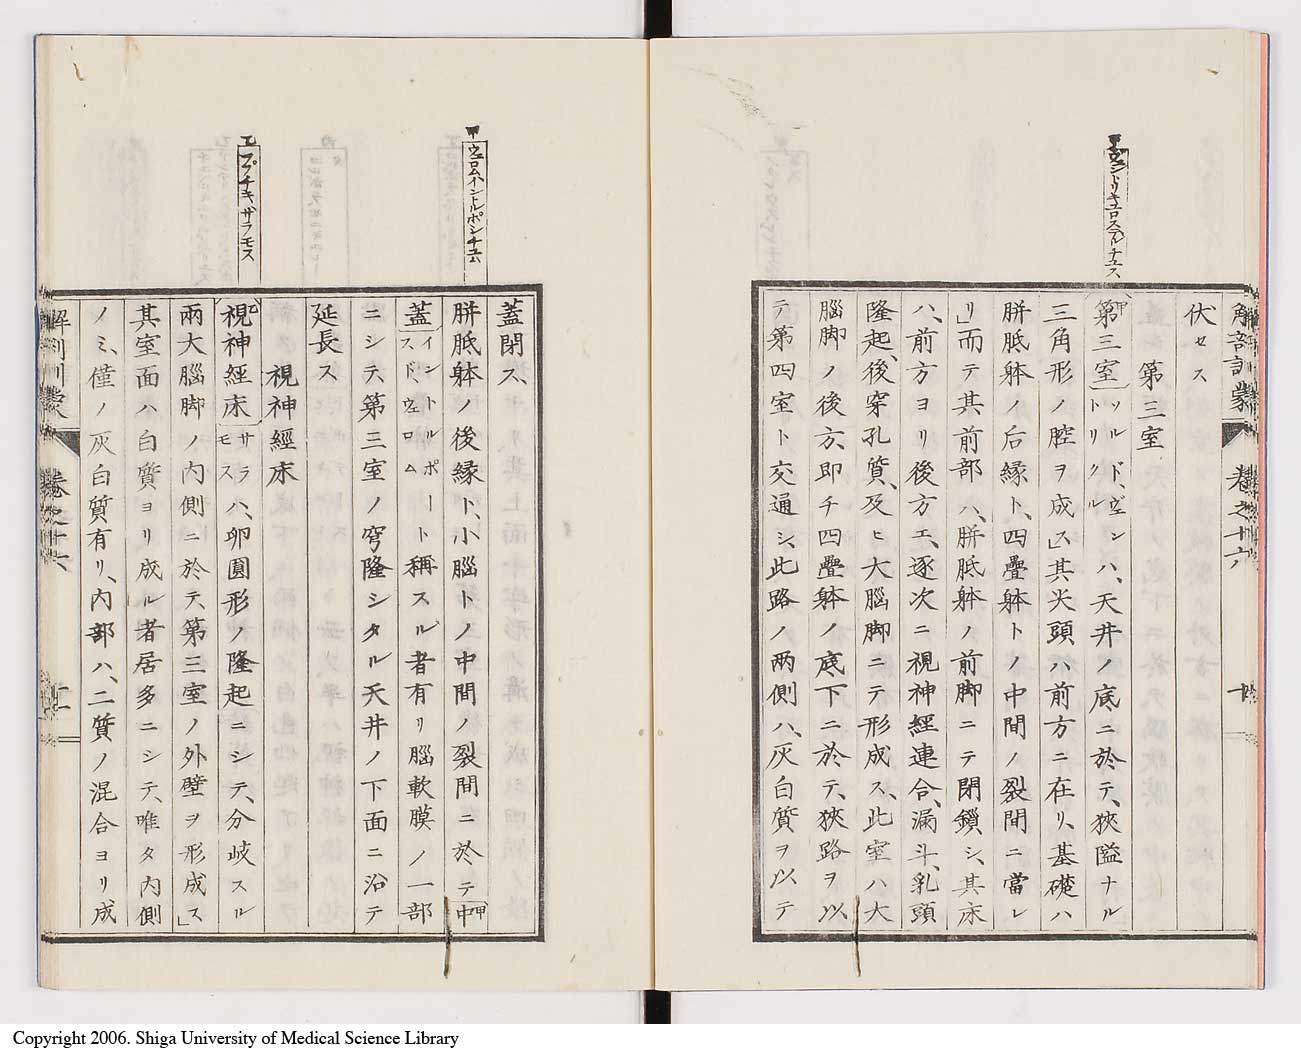 解剖訓蒙
卷之十六
十
伏セス
第三室
甲
第三室
ソルド、ヴェン
トリクル
ハ、天井ノ底ニ於テ、狹隘ナル
三角形ノ腔ヲ成ス」其尖頭ハ前方ニ在リ、基礎ハ
胼胝躰ノ后縁ト、四疊躰トノ中間ノ裂間ニ當レ
リ」而テ其前部ハ、胼胝躰ノ前脚ニテ閉鎖シ、其床
ハ、前方ヨリ後方エ、逐次ニ視神經連合、漏斗、乳頭
隆起、後穿孔質、及ヒ大腦脚ニテ形成ス、此室ハ大
腦脚ノ後方、即チ四疊躰ノ底下ニ於テ、狹路ヲ以
テ第四室ト交通シ、此路ノ兩側ハ、灰白質ヲ以テ
甲 ウェロムイントルポシチユム
乙 プラチキ、サラモス
蓋閉ス、
胼胝躰ノ後縁ト、小腦トノ中間ノ裂間ニ於テ中
甲
蓋
イントルポート
スド、ウェロム
ト稱スル者有リ腦軟膜ノ一部
ニシテ、第三室ノ穹隆シタル天井ノ下面ニ沿テ
延長ス
視神經床
乙
視神經床
サラ
モス
ハ、卵圓形ノ隆起ニシテ、分岐スル
兩大腦脚ノ內側ニ於テ、第三室ノ外壁ヲ形成ス」
其室面ハ白質ヨリ成ル者居多ニシテ、唯タ內側
ノミ、僅ノ灰白質有リ、內部ハ、二質ノ混合ヨリ成
卷之十六
十一
Copyright 2006. Shiga University of Medical Science Library